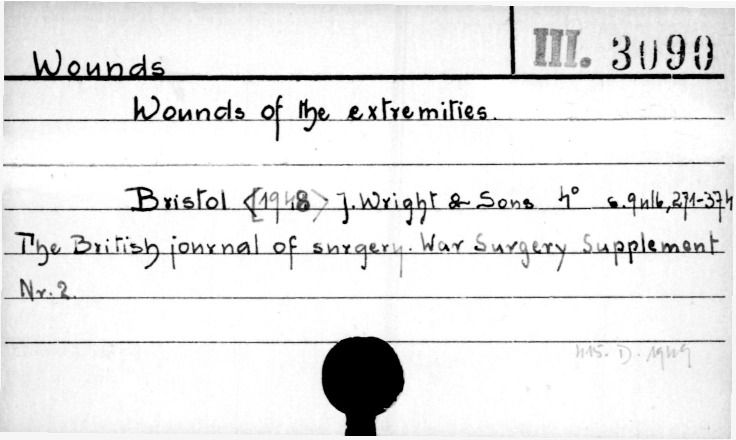 Wounds
III. 3090
Wounds of the extremities.
Bristol <[1948> J. Wright & Sons 4° 271-374
The British journal of surgery. War Surgery Supplement
Nr. 2.
D. 1949